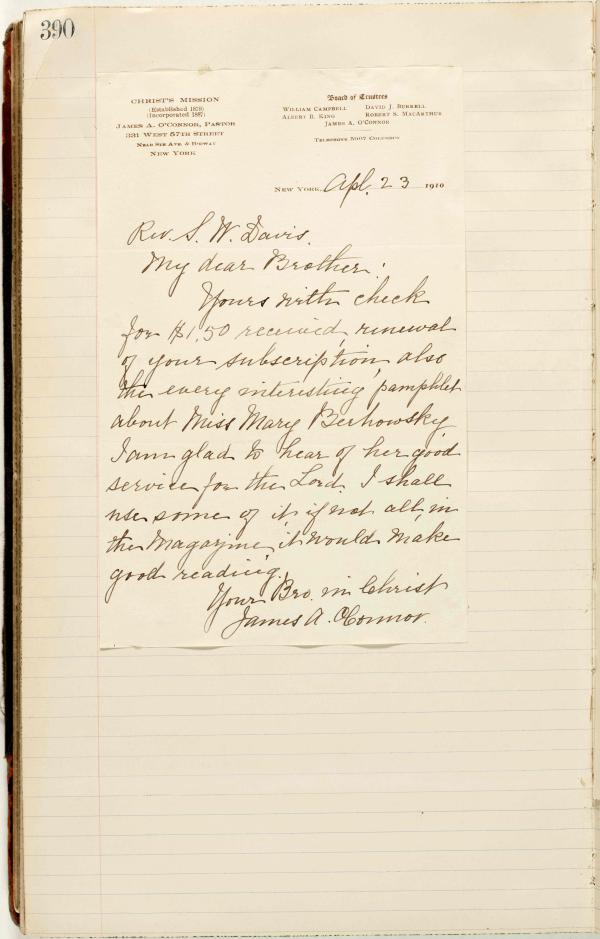 390
CHRIST'S MISSION
(Established 1879)
(Incorporated 1887)
JAMES A. O'CONNOR, PASTOR
331 WEST 57TH STREET
NEAR 8TH AVE. & BDWAY
NEW YORK
Board of Trustees
WILLIAM CAMPBELL DAVID J. BURRELL
ALBERT B. KING ROBERT S. MACARTHUR
JAMES A. O'CONNOR
TELEPHONE 5007 COLUMBUS
NEW YORK, Apl. 23 1910
Rev. S. W. Davis.
My dear Brother:
Yours with check
for $1.50 received, renewal
of your subscription, also
the very interesting pamphlet
about Miss Mary Berhowsky
I am glad to hear of her good
service for the Lord. I shall
use some of it, if not all, in
the Magazine, it would make
good reading.
Your Bro. in Christ
James A. O'Connor.